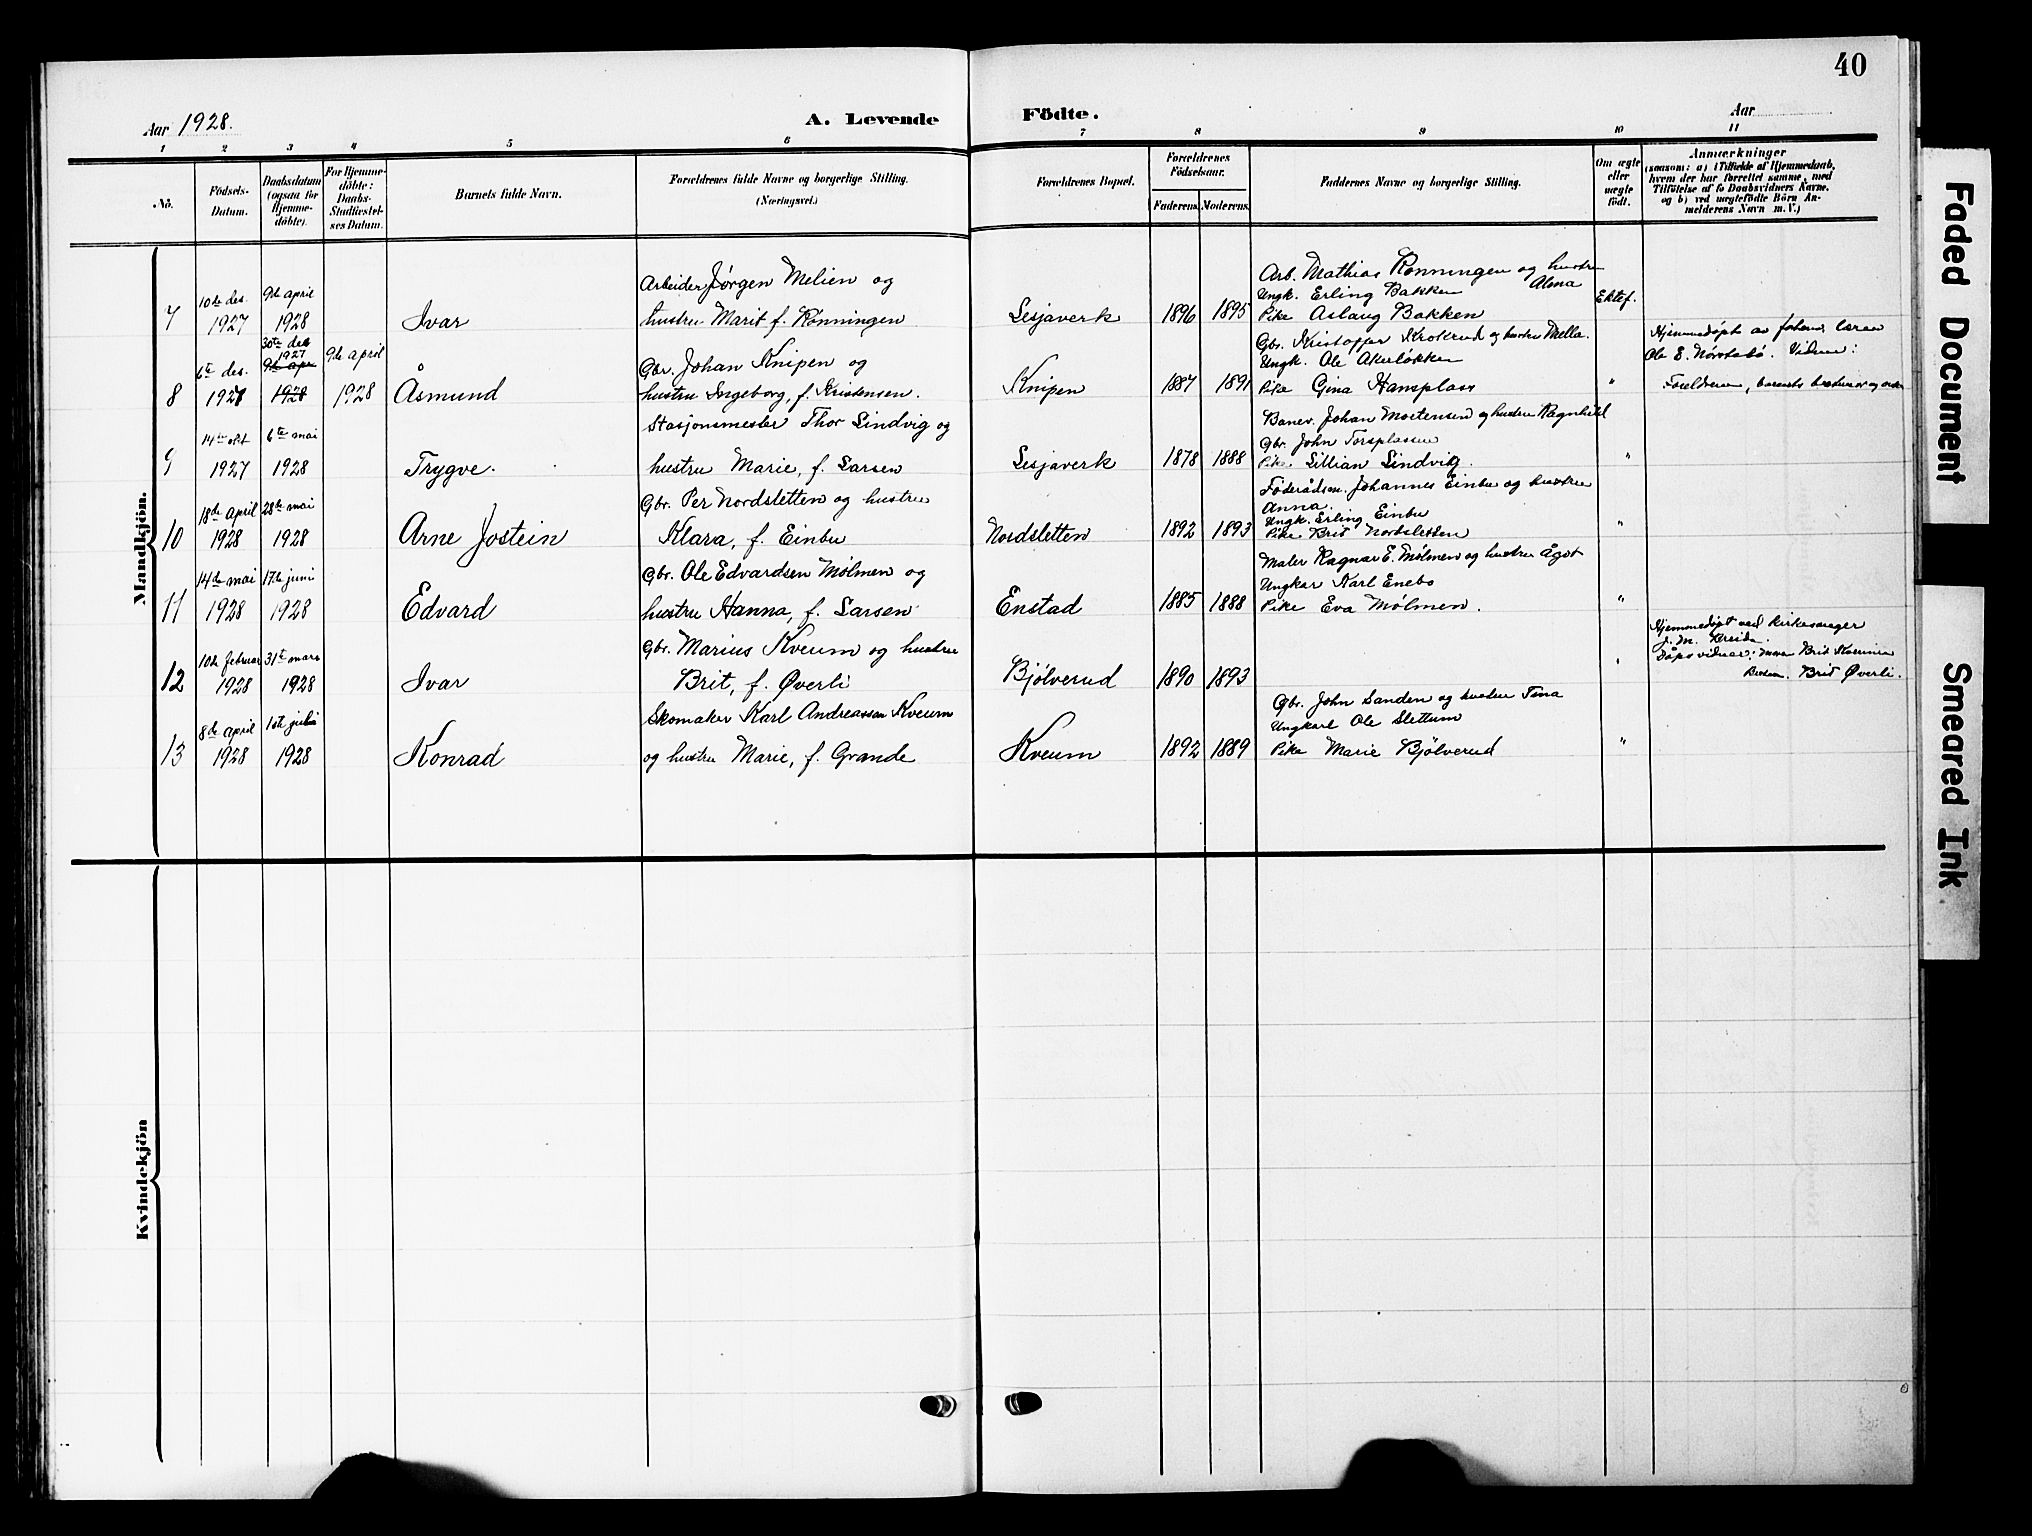 40
Aar 1928.
A. Levende Födte.
Aar
1 2 3 4 5 6 7 8 9 10 11
No.
Födsels-Datum.
Daabsdatum (ogsaa for Hjemme-döbte).
For Hjemme-döbte: Daabs-Stadfæstel-ses Datum.
Barnets fulde Navn.
Forældrenes fulde Navne og borgerlige Stilling.
(Næringsvei.)
Forældrenes Bopæl.
Forældrenes Födselsaar.
Faderens. Moderens.
Faddernes Navne og borgerlige Stilling.
Om ægte eller uægte födt.
Anmærkninger
(saasom: a) i Tilfælde af Hjemmedaab,
hvem der har forrettet samme, med
Tilföielse af to Daabsvidners Navne,
og b) ved uægtefödte Börn An-
melderens Navn m. V.)
Mandkjön.
7
10de des. 1927
9de april 1928
Ivar
Arbeider Jørgen Melien og
hustru Marit f. Rønningen
Lesjaverk
1896
1895
Arb. Mathias Rønningen og hustru Alma
Ungk. Erling Bakken
Pike Aslaug Bakken
Ektef.
8
6te des. 1927
30te des 1927
9de apr 1928
9de april 1928
Åsmund
Gbr. Johan Knipen og
hustru Ingeborg, f. Kristensen.
Knipen
1887
1891
Gbr. Kristoffer Krokrud og hustru Mella.
Ungk. Ole Akerløkken
Pike Gina Hansplass
"
Hjemmedøpt av forhenv. lærer
Ole E. Nørstebø. Vidner:
Foreldrene, barnets brødre
9
14de okt 1927
6te mai 1928
Trygve.
Stasjonsmester Thor Lindvig og
hustru Marie, f. Larsen
Lesjaverk
1878
1888
Banev. Johan Mortensen og hustru Ragnhild
Gbr. John Torsplassen
Pike Lillian Lindvig.
"
10
18de april 1928
28de mai 1928
Arne Jostein
Gbr. Per Nordsletten og hustru
Klara, f. Einbu
Nordsletten
1892
1893
Føderådsm. Johannes Einbu og hustru
Anna.
Ungk. Erling Einbu
Pike Brit Nordsletten
"
11
14de mai 1928
17de juni 1928
Edvard
Gbr. Ole Edvardsen Mølmen og
hustru Hanna, f. Larsen
Enstad
1885
1888
Maler Ragnar E. Mølmen og hustru Ågot
Ungkar Karl Enebo
Pike Eva Mølmen.
"
12
10de februar 1928
31te mars 1928
Ivar
Gbr. Marius Kveum og hustru
Brit, f. Øverli
Bjølverud
1890
1893
"
Hjemmedøpt ved kirkesanger
J. M. Kreida.
Dåpsvidner: Brit Øverli.
13
8de april 1928
1ste juli 1928
Konrad
Skomaker Karl Andreassen Kveum
og hustru Marie, f. Grande
Kveum
1892
1889
Gbr. John Sanden og hustru Tina
Ungkarl Ole Slettum
Pike Marie Bjølverud
"
Kvindekjön
Faded Document
Smeared Ink